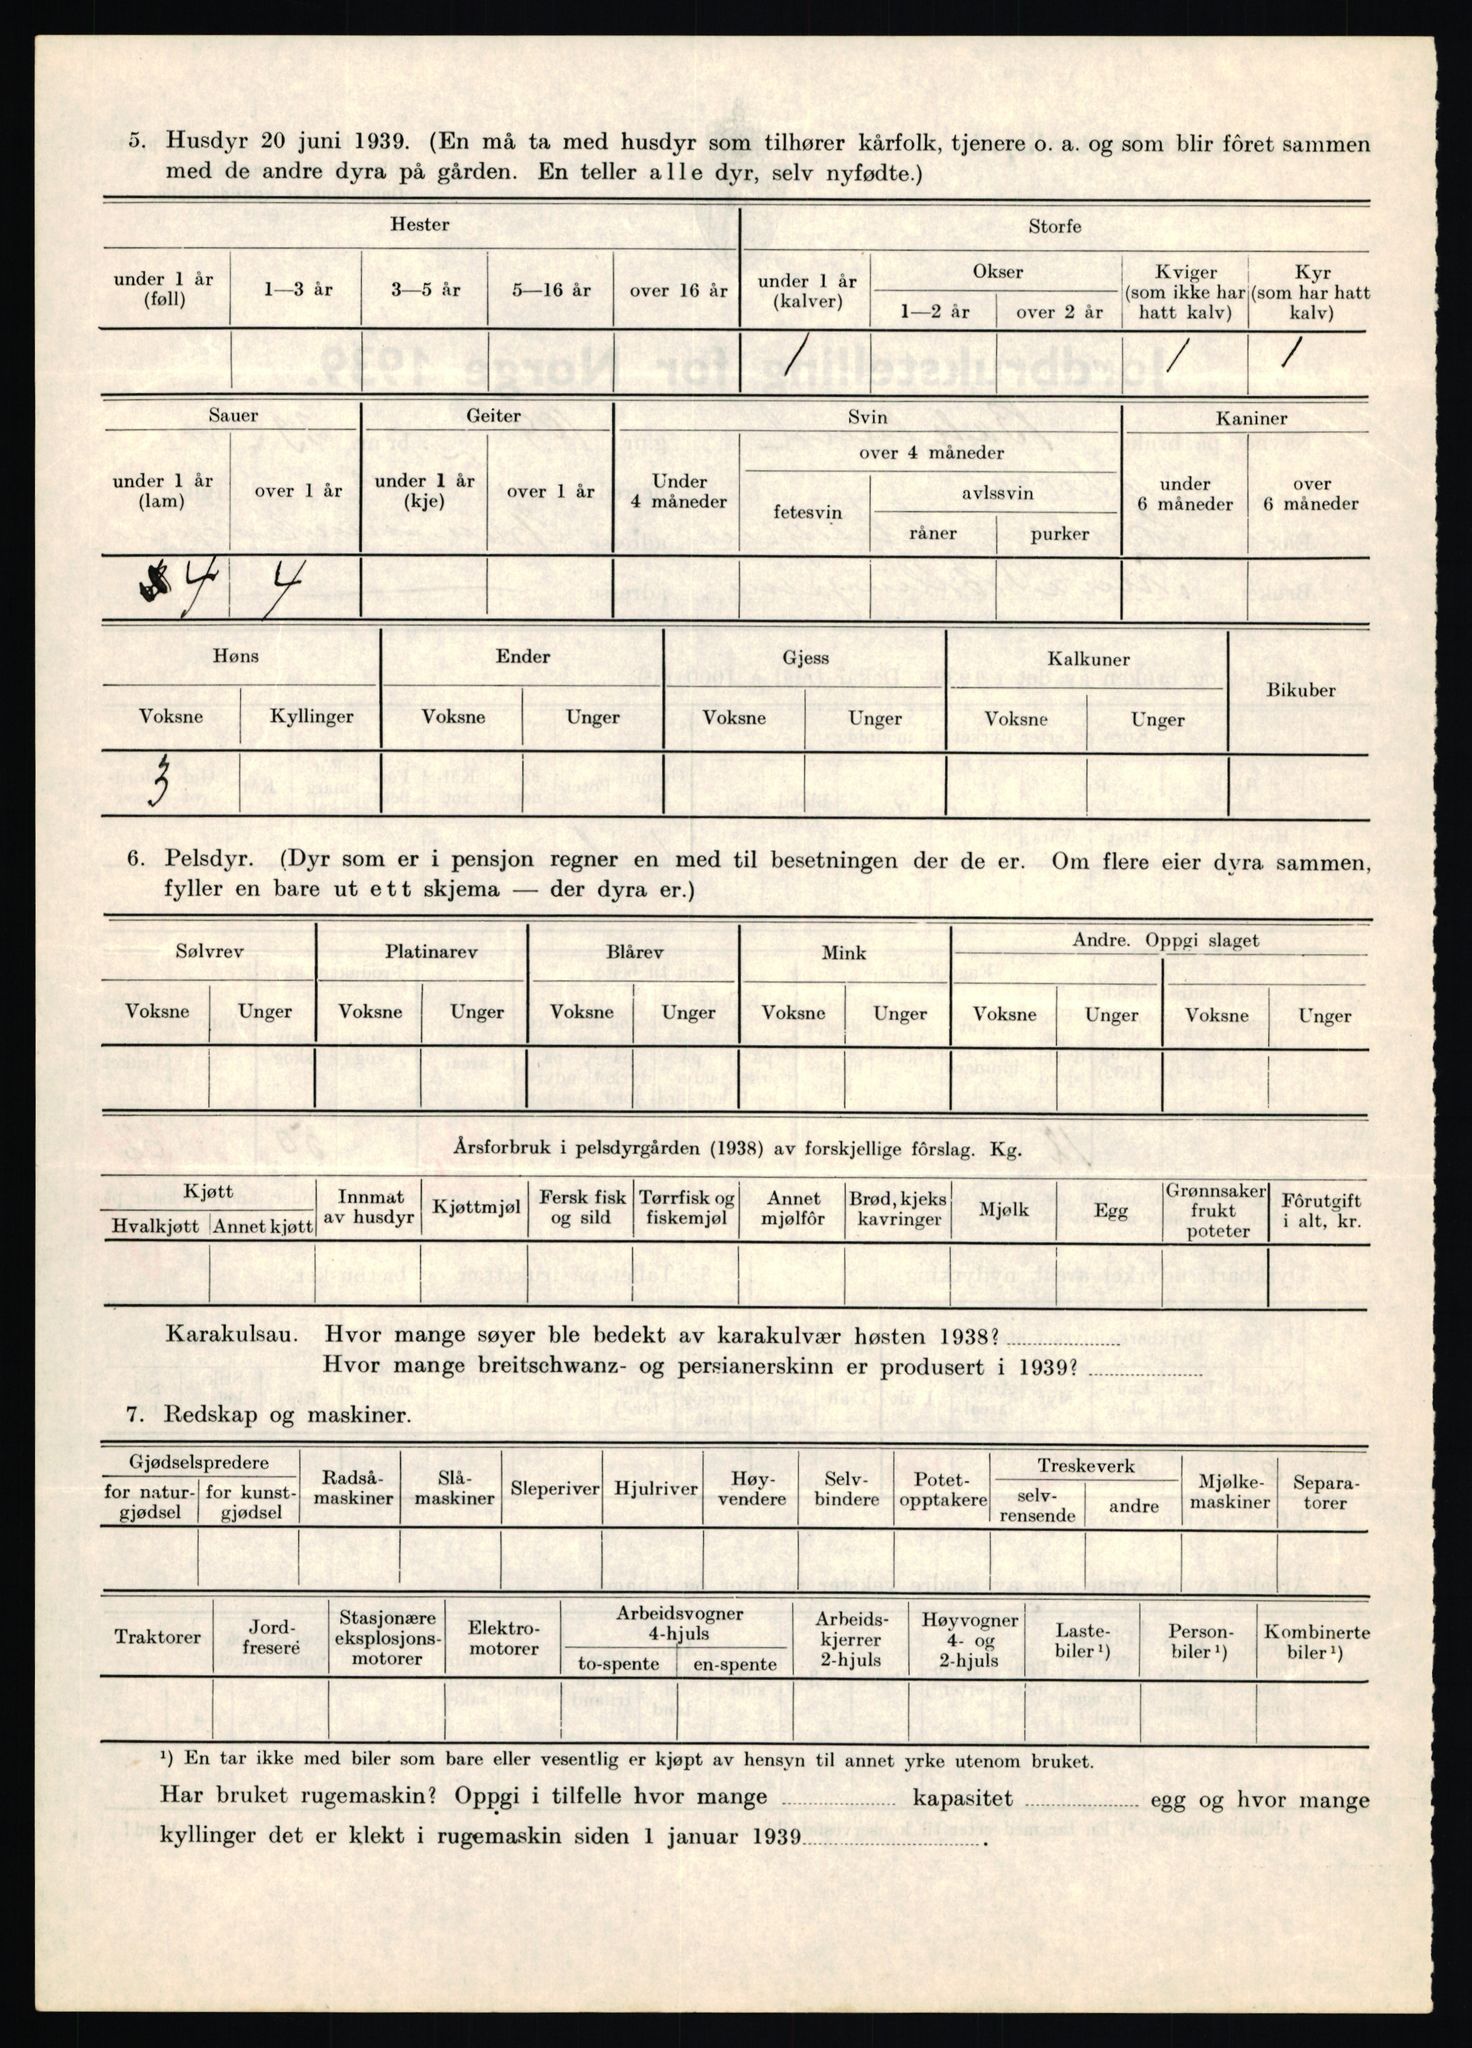 5. Husdyr 20 juni 1939. (En må ta med husdyr som tilhører kårfolk, tjenere o. a. og som blir fôret sammen
med de andre dyra på gården. En teller alle dyr, selv nyfødte.)
Hester Storfe
under 1 år (føll) 1—3 år 3—5 år 5—16 år over 16 år under 1 år (kalver) Okser 1—2 år over 2 år Kviger (som ikke har hatt kalv) Kyr (som har hatt kalv)
1 1 1
Sauer Geiter Svin Kaniner
under 1 år (lam) over 1 år under 1 år (kje) over 1 år Under 4 måneder over 4 måneder fetesvin avlssvin råner purker under 6 måneder over 6 måneder
4 4
Høns Ender Gjess Kalkuner Bikuber
Voksne Kyllinger Voksne Unger Voksne Unger Voksne Unger
3
6. Pelsdyr. (Dyr som er i pensjon regner en med til besetningen der de er. Om flere eier dyra sammen,
fyller en bare ut ett skjema — der dyra er.)
Sølvrev Platinarev Blårev Mink Andre. Oppgi slaget
Voksne Unger Voksne Unger Voksne Unger Voksne Unger Voksne Unger Voksne Unger
Årsforbruk i pelsdyrgården (1938) av forskjellige fôrslag. Kg.
Kjøtt Hvalkjøtt Annet kjøtt Innmat av husdyr Kjøttmjøl Fersk fisk og sild Tørrfisk og fiskemjøl Annet mjølfôr Brød, kjeks kavringer Mjølk Egg Grønnsaker frukt poteter Fôrutgift i alt, kr.
Karakulsau. Hvor mange søyer ble bedekt av karakulvær høsten 1938?
Hvor mange breitschwanz- og persianerskinn er produsert i 1939?
7. Redskap og maskiner.
Gjødselspredere for naturgjødsel for kunstgjødsel Radsåmaskiner Slåmaskiner Sleperiver Hjulriver Høyvendere Selvbindere Potetopptakere Treskeverk selvrensende andre Mjølkemaskiner Separatorer
Traktorer Jordfresere Stasjonære eksplosjonsmotorer Elektromotorer Arbeidsvogner 4-hjuls to-spente en-spente Arbeidskjerrer 2-hjuls Høyvogner 4- og 2-hjuls Lastebiler ¹) Personbiler ¹) Kombinerte biler ¹)
¹) En tar ikke med biler som bare eller vesentlig er kjøpt av hensyn til annet yrke utenom bruket.
Har bruket rugemaskin? Oppgi i tilfelle hvor mange kapasitet egg og hvor mange
kyllinger det er klekt i rugemaskin siden 1 januar 1939 .